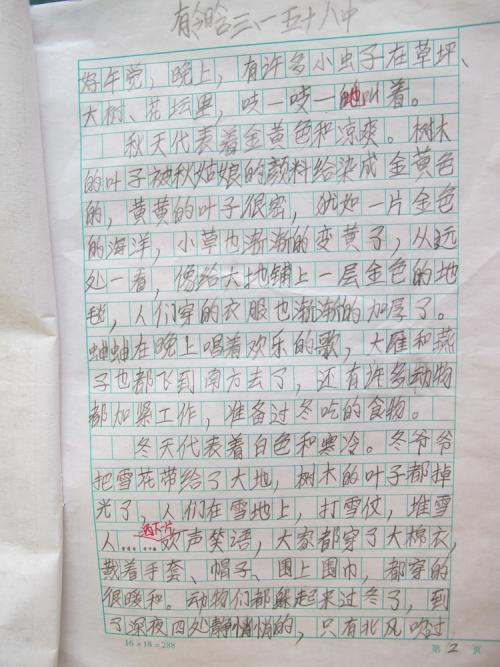 有 哈三、一五十八中
好午觉，晚上，有许多小虫子在草坪、
大树、花坛里，吱一吱一地叫着。
秋天代表着金黄色和凉爽。树木
的叶子被秋姑娘的颜料给染成金黄色
的，黄黄的叶子很密，犹如一片金色
的海洋，小草也渐渐的变黄了，从远
处一看，像给大地铺上一层金色的地
毯，人们穿的衣服也渐渐的加厚了。
蛐蛐在晚上唱着欢乐的歌，大雁和燕
子也都飞到南方去了，还有许多动物
都加紧工作，准备过冬吃的食物。
冬天代表着白色和寒冷。冬爷爷
把雪花带给了大地，树木的叶子都掉
光了，人们在雪地上，打雪仗，堆雪
洒下一片
人……欢声笑语，大家都穿了大棉衣，
戴着手套、帽子、围上围巾，都穿的
很暖和。动物们都躲起来过冬了，到
了深夜四处静悄悄的，只有北风吹过
16×18=288
第 2 页